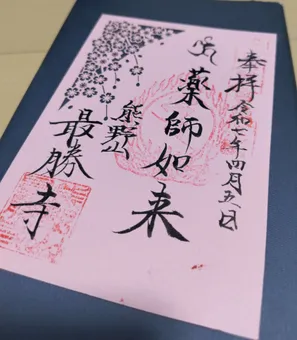 奉拝
令和七年四月五日
薬師如来
熊野山
最勝寺